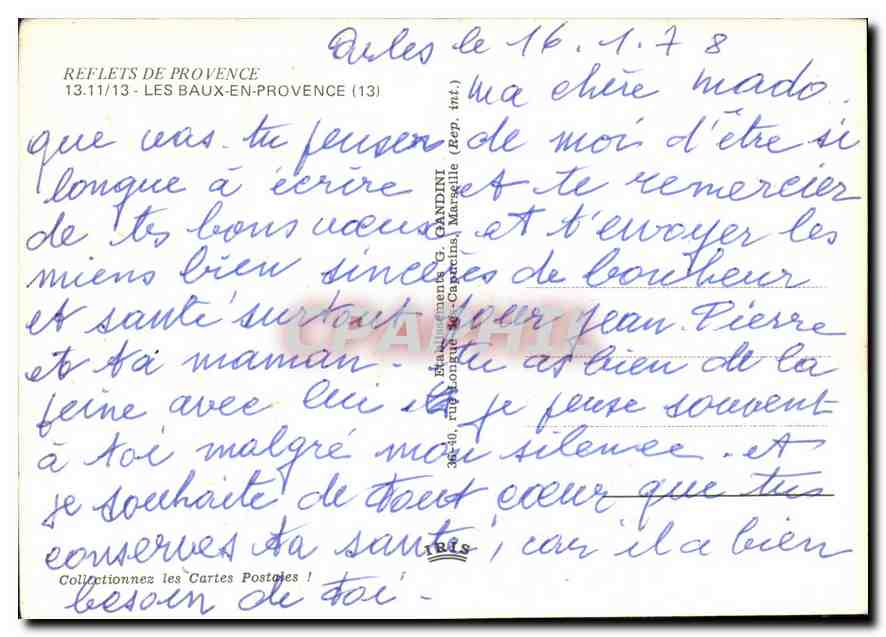 Arles le 16.1.78
REFLETS DE PROVENCE
13.11/13 - LES BAUX-EN-PROVENCE (13)
ma chère mado.
que vas-tu penser de moi d'être si
longue à écrire et te remercier
de tes bons vœux et t'envoyer les
miens bien sincères de bonheur
et santé surtout pour jean-Pierre
et ta maman - tu as bien de la
peine avec lui et je pense souvent
à toi malgré mon silence. et
je souhaite de tout cœur que tu
conserves ta santé, car il a bien
besoin de toi -
Etablissements G. GANDINI
36-40, rue Longue des-Capucins, Marseille (Rep. int.)
IRIS
Collectionnez les Cartes Postales !
CPAPHIL